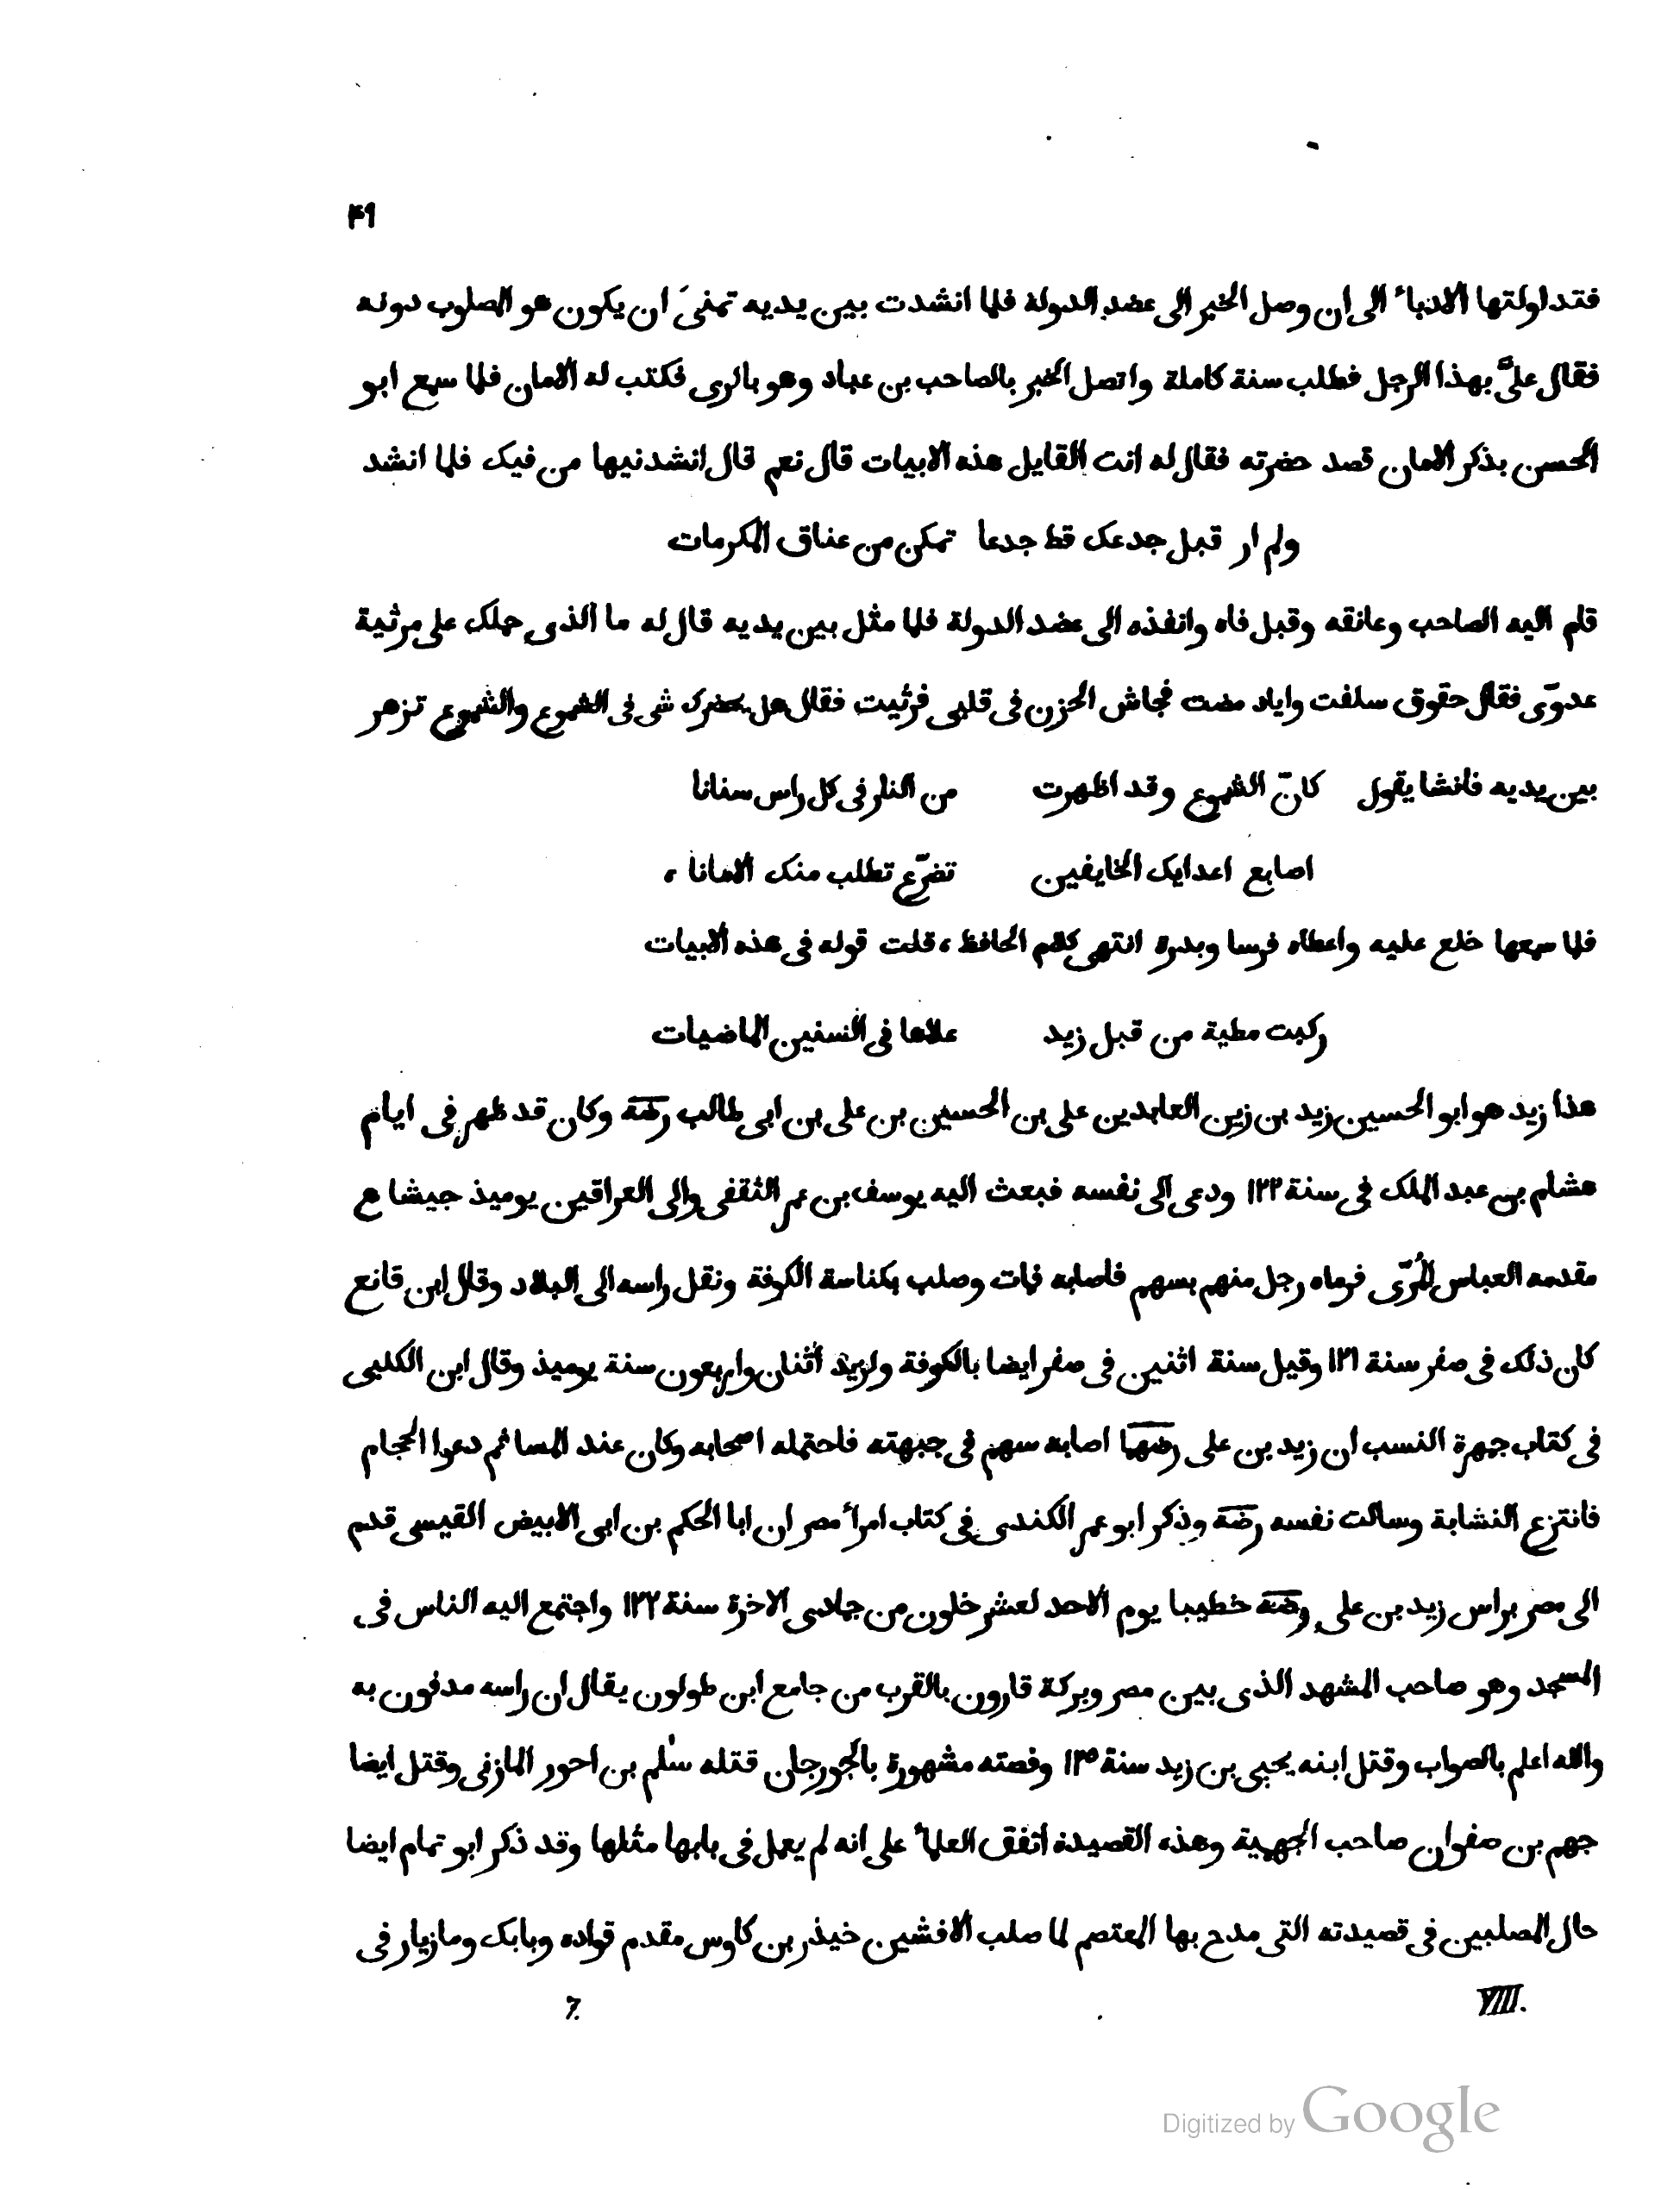 ۴۹
فتداولتها الادباء الى ان وصل الخبر الى عضد الدولة فلما انشدت بين يديه تمنىَ ان يكون هو المصلوب دونه
فقال علىَّ بهذا الرجل فطلب سنة كاملة واتصل الخبر بالصاحب بن عباد وهو بالرى فكتب له الامان فلما سمع ابو
الحسن بذكر الامان قصد حضرته فقال له انت القايل هذه الابيات قال نعم قال انشدنيها من فيك فلما انشد
ولم ار قبل جدعك قط جدعا تمكن من عناق المكرمات
قام اليه الصاحب وعانقه وقبل فاه وانفذه الى عضد الدولة فلما مثل بين يديه قال له ما الذى حملك على مرثية
عدوّى فقال حقوق سلفت واياد مضت فجاش الحزن فى قلبى فرثيت فقال هل يحضرك شى فى الشموع والشموع تزهر
بين يديه فانشا يقول كانّ الشموع وقد اظهرت من النار فى كل راس سنانا
اصابع اعدايك الخايفين تضرّع تطلب منك الامانا ،
فلما سمعها خلع عليه واعطاه فرسا وبدرة انتهى كلام الحافظ ، قلت قوله فى هذه الابيات
ركبت مطية من قبل زيد علاها فى السنين الماضيات
هذا زيد هو ابو الحسين زيد بن زين العابدين على بن الحسين بن على بن ابى طالب رضة وكان قد ظهر فى ايام
هشام بن عبد الملك فى سنة ۱۲۲ ودعى الى نفسه فبعث اليه يوسف بن عمر الثقفى والى العراقين يوميذ جيشا ع
مقدمه العباس المُرّى فرماه رجل منهم بسهم فاصابه فمات وصلب بكناسة الكوفة ونقل راسه الى البلاد وقال ابن قانع
كان ذلك فى صفر سنة ۱۲۱ وقيل سنة اثنين فى صفر ايضا بالكوفة ولزيد اثنان واربعون سنة يوميذ وقال ابن الكلبى
فى كتاب جمهرة النسب ان زيد بن على رضهما اصابه سهم فى جبهته فاحتمله اصحابه وكان عند المسا ثم دعوا الحجام
فانتزع النشابة وسالت نفسه رضة وذكر ابو عمر الكندى فى كتاب امرأ مصر ان ابا الحكم بن ابى الابيض القيسى قدم
الى مصر براس زيد بن على رضة خطيبا يوم الاحد لعشر خلون من جمادى الاخرة سنة ۱۲۲ واجتمع اليه الناس فى
المسجد وهو صاحب المشهد الذى بين مصر وبركة قارون بالقرب من جامع ابن طولون يقال ان راسه مدفون به
والله اعلم بالصواب وقتل ابنه يحيى بن زيد سنة ۱۲۵ وقصته مشهورة بالجورجان قتله سَلم بن احور المازنى وقتل ايضا
جهم بن صفوان صاحب الجهمية وهذه القصيدة اتفق العلمأ على انه لم يعمل فى بابها مثلها وقد ذكر ابو تمام ايضا
حال المصلبين فى قصيدته التى مدح بها المعتصم لما صلب الافشين خيذر بن كاوس مقدم قواده وبابك ومازيار فى
VIII. 7.
Digitized by Google